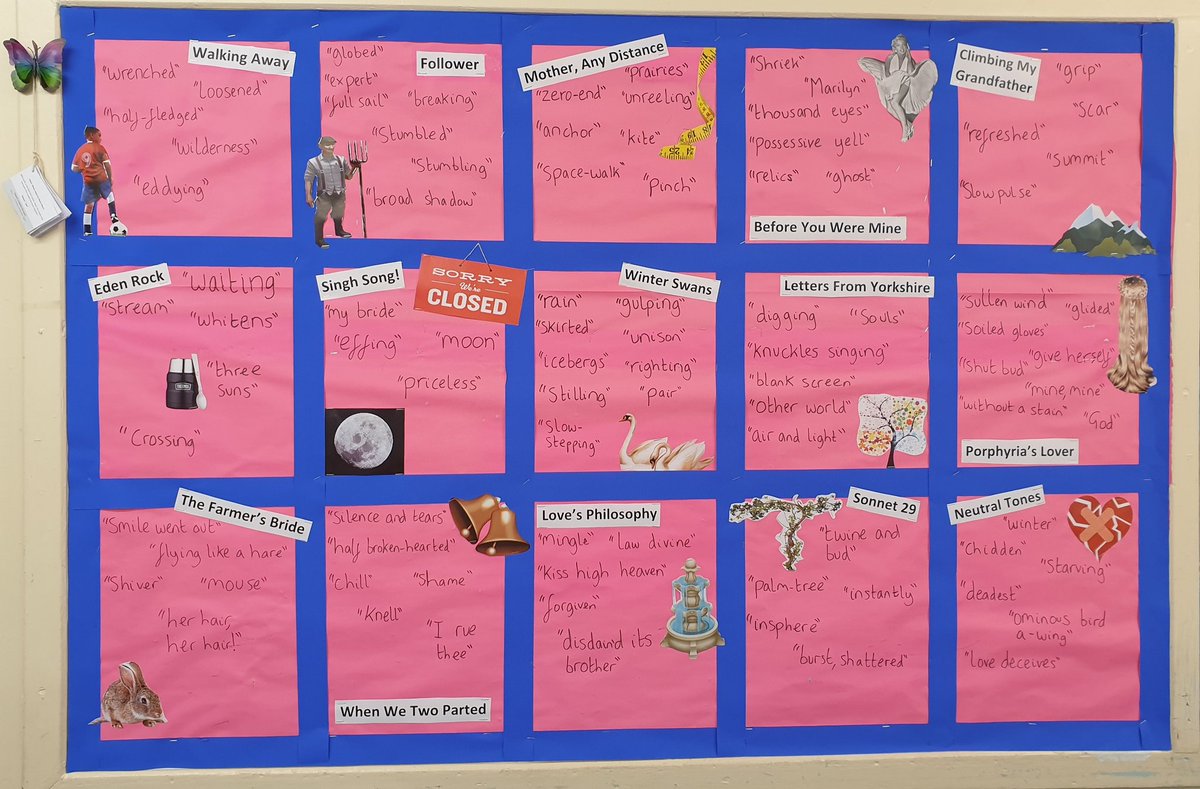 Walking Away
"wrenched"
"loosened"
"half-fledged"
"wilderness"
"eddying"
Follower
"globed"
"expert"
"full sail"
"breaking"
"Stumbled"
"Stumbling"
"broad shadow"
Mother, Any Distance
"prairies"
"zero-end"
"unreeling"
"anchor"
"kite"
"Space-walk"
"Pinch"
"Shriek"
"Marilyn"
"thousand eyes"
"possessive yell"
"relics"
"ghost"
Before You Were Mine
Climbing My
Grandfather
"grip"
"Scar"
"refreshed"
"summit"
"Slow pulse"
Eden Rock
"waiting"
"Stream"
"whitens"
"three
suns"
"Crossing"
THERMOS
Singh Song!
SORRY
We're
CLOSED
"my bride"
"effing"
"moon"
"priceless"
Winter Swans
"rain"
"gulping"
"skirted"
"unison"
"icebergs"
"righting"
"Stilling"
"pair"
"Slow-
stepping"
Letters From Yorkshire
"digging"
"Souls"
"Knuckles singing"
"blank screen"
"Other world"
"air and light"
"sullen wind"
"glided"
"Soiled gloves"
"Shut bud"
"give herself"
"mine, mine"
"without a stain"
"God"
Porphyria's Lover
The Farmer's Bride
"Smile went out"
"flying like a hare"
"Shiver"
"mouse"
"her hair,
her hair!"
"Silence and tears"
"half broken-hearted"
"Chill"
"Shame"
"Knell"
"I rue
thee"
When We Two Parted
Love's Philosophy
"Mingle"
"Law divine"
"Kiss high heaven"
"forgiven"
"disdain'd its
brother"
Sonnet 29
"twine and
bud"
"palm-tree"
"instantly"
"insphere"
"burst, shattered"
Neutral Tones
"winter"
"Chidden"
"Starving"
"deadest"
"ominous bird
a-wing"
"love deceives"